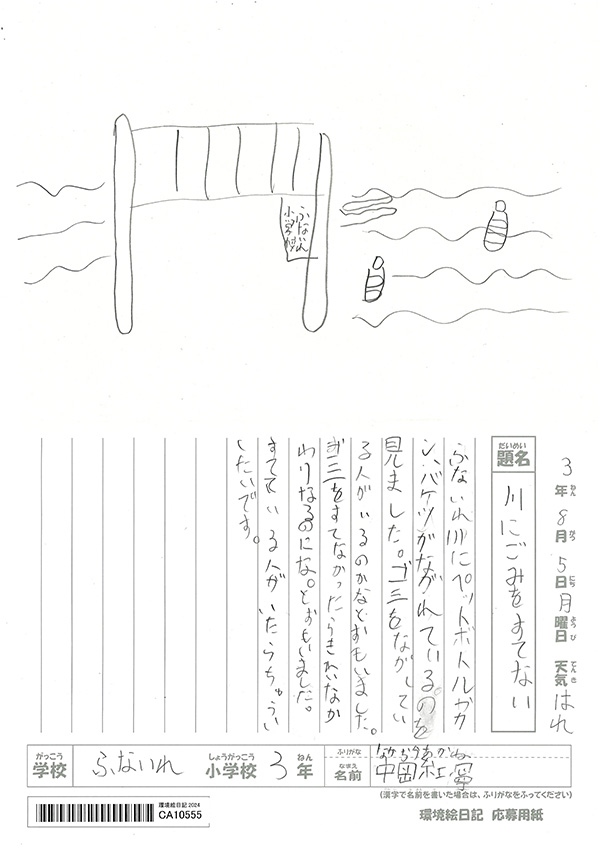 ふないれ
小学校
3年8月5日月曜日 天気はれ
ねん がつ にち ようび てんき
だいめい
題名
川にごみをすてない
ふないれ川にペットボトルやカ
ン、バケツがながれているのを
見ました。ゴミをながしてい
る人がいるのかなとおもいました。
ゴミをすてなかったらきれいなか
わりなるのにな。とおもいました。
すてている人がいたらちゅうい
したいです。
がっこう しょうがっこう ねん
学校 ふないれ 小学校 3年
ふりがな なかおかあかね
なまえ
名前 中岡紅寧
(漢字で名前を書いた場合は、ふりがなをふってください)
環境絵日記2024
CA10555
環境絵日記 応募用紙